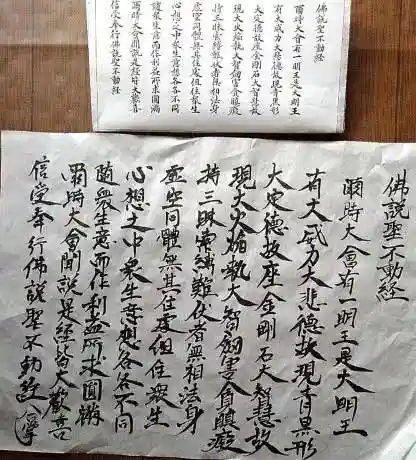 佛説聖不動経
爾時大會有一明王是大明王
有大威力大悲徳故現青黒形
大定徳故座金剛石大智慧故
現大火焔執大智剣害貪瞋癡
持三昧索縛難伏者無相法身
虚空同體無其住處但住衆生
心想之中衆生意想各各不同
随衆生意而作利益所求圓満
爾時大會聞説是経皆大歓喜
信受奉行佛説聖不動経
佛説聖不動経
爾時大會有一明王是大明王
有大威力大悲徳故現青黒形
大定徳故座金剛石大智慧故
現大火焔執大智剣害貪瞋癡
持三昧索縛難伏者無相法身
虚空同體無其住處但住衆生
心想之中衆生意想各各不同
随衆生意而作利益所求圓満
爾時大會聞説是経皆大歓喜
信受奉行佛説聖不動経